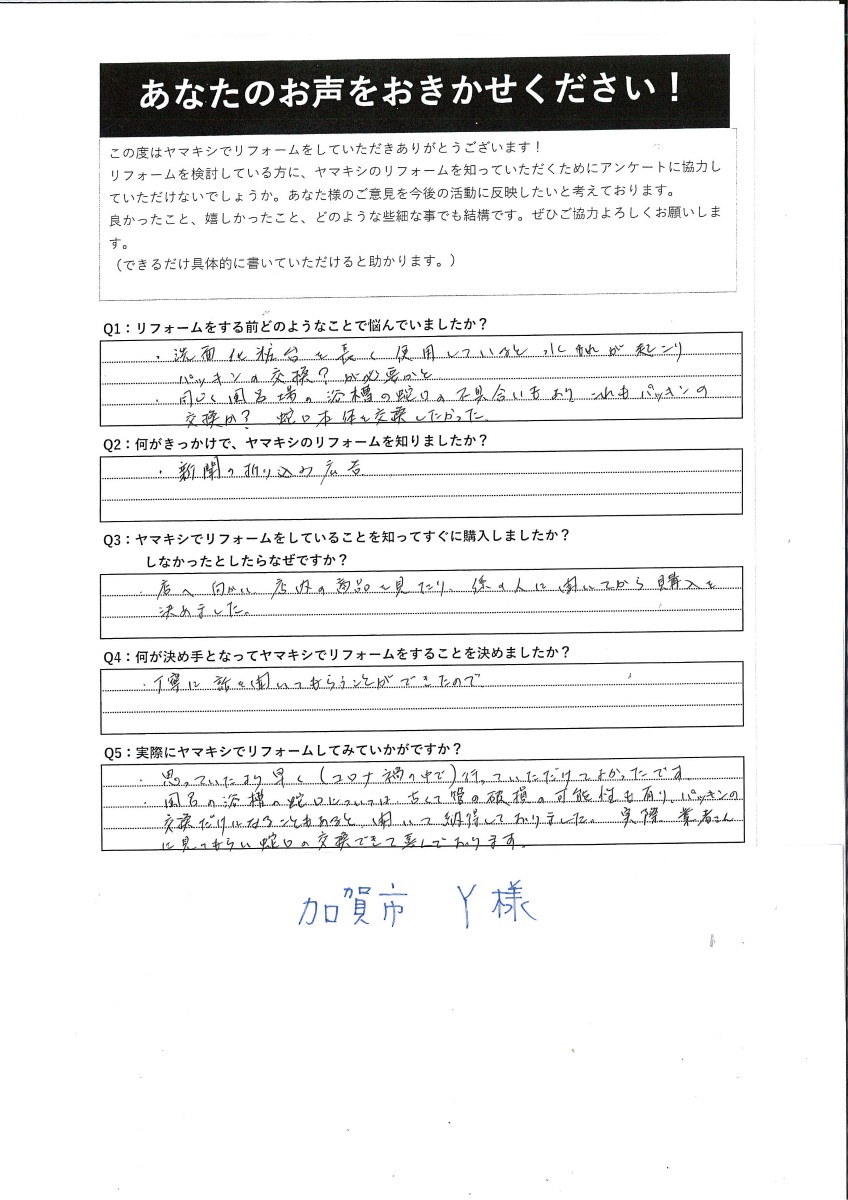 あなたのお声をおきかせください！
この度はヤマキシでリフォームをしていただきありがとうございます！
リフォームを検討している方に、ヤマキシのリフォームを知っていただくためにアンケートに協力し
ていただけないでしょうか。あなた様のご意見を今後の活動に反映したいと考えております。
良かったこと、嬉しかったこと、どのような些細な事でも結構です。ぜひご協力よろしくお願いしま
す。
（できるだけ具体的に書いていただけると助かります。）
Q1：リフォームをする前どのようなことで悩んでいましたか？
・洗面化粧台を長く使用していると水もれが起こり
パッキンの交換？が必要かと
・同じく風呂場の浴槽の蛇口の不具合いもあり これもパッキンの
交換か？ 蛇口本体を交換したかった
Q2：何がきっかけで、ヤマキシのリフォームを知りましたか？
・新聞の折り込み広告
Q3：ヤマキシでリフォームをしていることを知ってすぐに購入しましたか？
しなかったとしたらなぜですか？
・店へ向かい 店内の商品を見たり、係の人に聞いてから購入を
決めました。
Q4：何が決め手となってヤマキシでリフォームをすることを決めましたか？
・丁寧に話を聞いてもらうことができたので
Q5：実際にヤマキシでリフォームしてみていかがですか？
・思っていたより早く（コロナ禍の中で）行っていただけてよかったです
・風呂の浴槽の蛇口については、古くて管の破損の可能性も有り、パッキンの
交換だけになることもあると、聞いて納得しておりました。 実際 業者さん
に見てもらい蛇口の交換できて喜んでおります。
加賀市 Y様